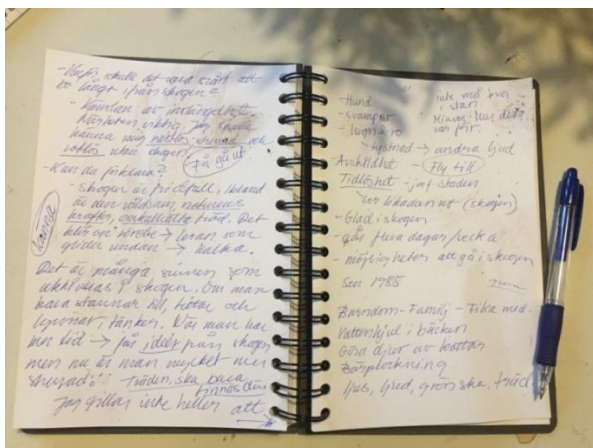 - Varför skulle det vara svårt att
bo långt ifrån skogen?
- Känslan av instängdhet.
viktig. Jag skulle
känna mig och
utan skogen.
få gå ut
- Kan du förklara?:
- skogen är fridfull, ibland
är den våldsam, naturens
krafter, träd. Det
blir en →  som
undan → kalka.
Känna
Det är många sinnen som
aktiveras i skogen. Om man
bara stannar till, tittar och
lyssnar, tänker. När man har
tid → från skogen
men nu är man mycket mer
Träden, ska bara
finnas där
Jag gillar inte heller att
- Hund
- svampar
- lugn & ro
inte med bra
i stan
Minns hur det
var förr.
tystnad → andra ljud
- Avskildhet - Fly till
Tidlöshet - jmf staden
ser likadan ut (skogen)
- Glad i skogen
- går flera dagar/vecka
- möjligheten att gå i skogen
Sen 1985
Barndom - Familj - Fika med
Vattenhjul i bäcken
Göra djur av kottar
Bärplockning
ljus, ljud, grönska, träd